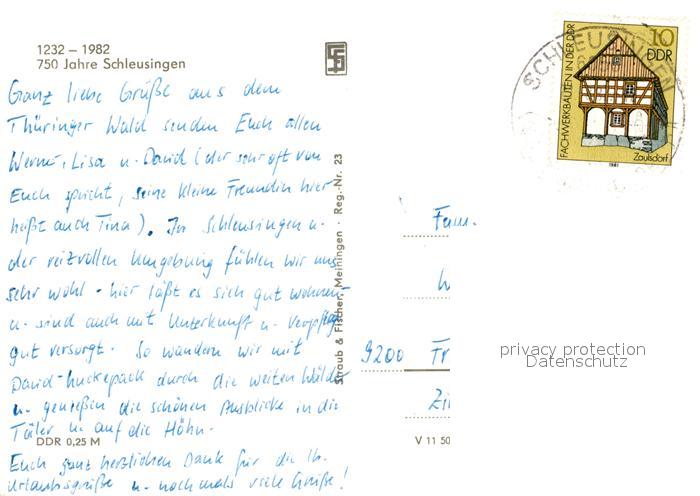 1232 – 1982
750 Jahre Schleusingen
Ganz liebe Grüße aus dem
Thüringer Wald senden Euch allen
Werner, Lisa u. David (der sehr oft von
Euch spricht, seine kleine Freundin hier
heißt auch Tina). In Schleusingen u.
der reizvollen Umgebung fühlen wir uns
sehr wohl - hier läßt es sich gut wohnen
u. sind auch mit Unterkunft u. Verpfleg.
gut versorgt. So wandern wir mit
David-huckepack durch die weiten Wälder
u. genießen die schönen Ausblicke in die
Täler u. auf die Höhn.
DDR 0,25 M
Euch ganz herzlichen Dank für die lb.
Urlaubsgrüße u. nochmals viele Grüße!
Straub & Fischer, Meiningen · Reg.-Nr. 23
V 11 50
Fam.
9200 Fr
Zi
SCHLEUSINGEN
10
DDR
FACHWERKBAUTEN IN DER DDR
Zaulsdorf
1981
privacy protection
Datenschutz